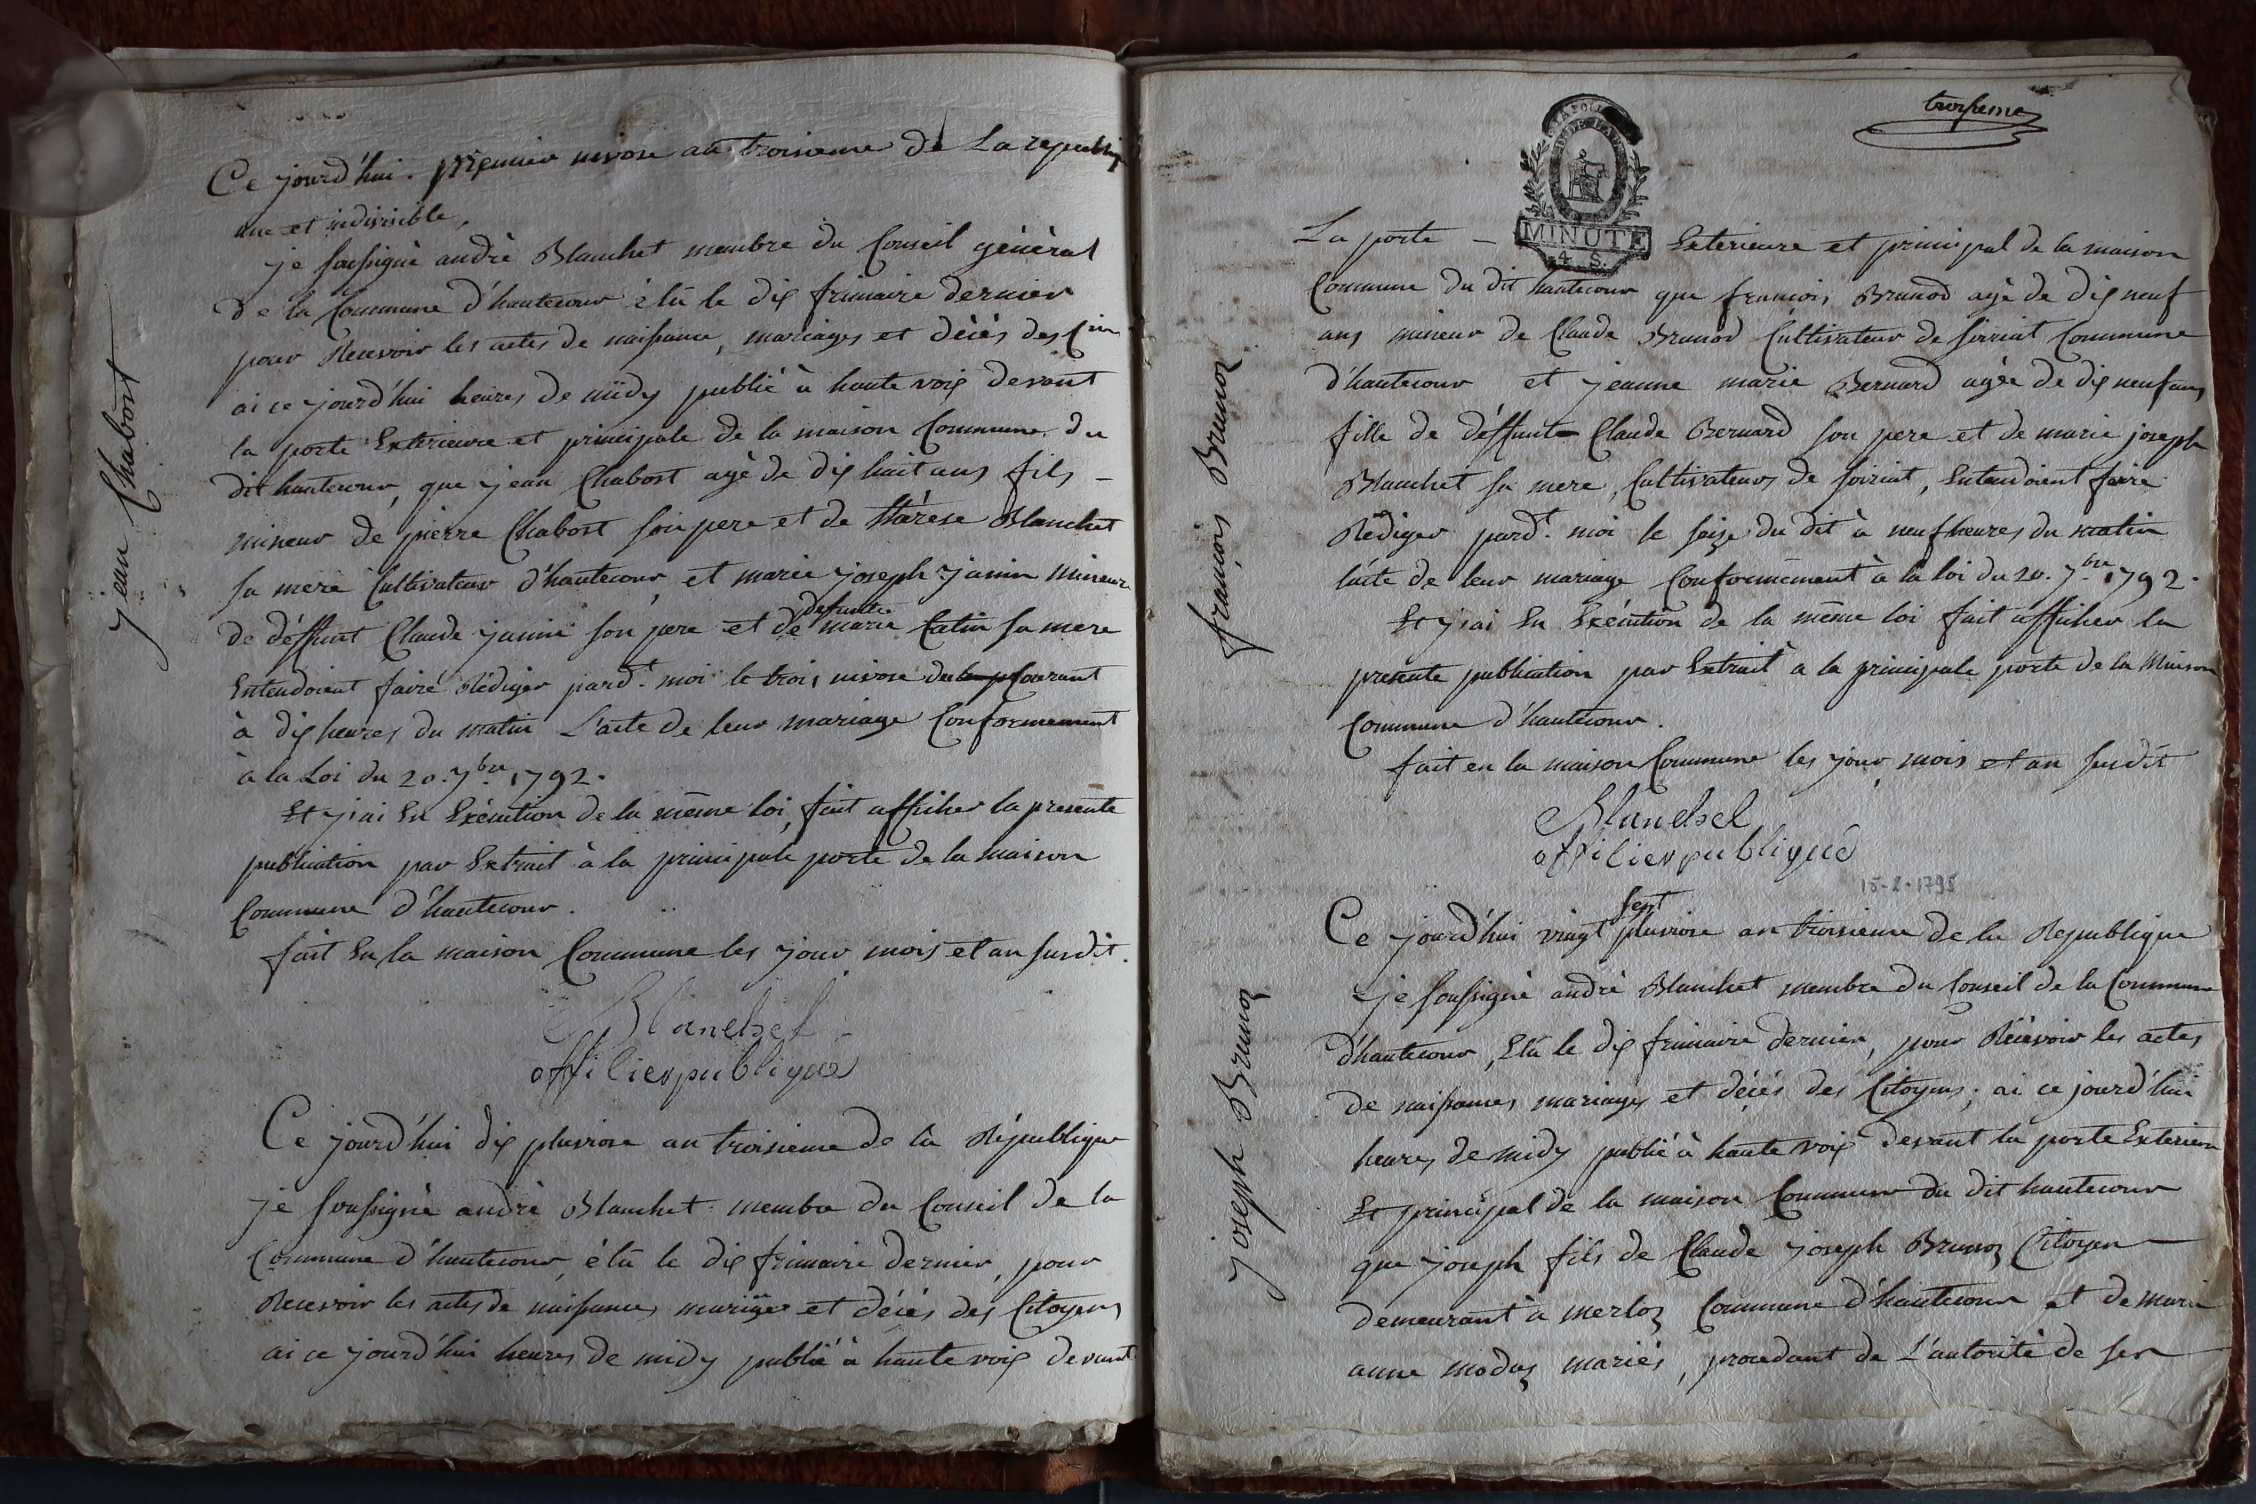 jean Chabost
Ce jourd'hui premier nivose an troisieme de La republiq
une et indivisible,
je soussigné andré Blanchet membre du Conseil général
de la Commune d'hautecour élû le dix frimaire dernier
pour Recevoir les actes de naissance, mariages et décés des
ai ce jourd'hui heures de midy publié à haute voix devant
la porte Exterieure et principale de la maison Commune du
dit hautecour, que jean Chabost agé de dix huit ans fils –
mineur de pierre Chabost son pere et de thérèse Blanchet
sa mere Cultivateur d'hautecour, et marie joseph janin Mineure
de déffunt Claude janin son pere et de defunte marie Catin sa mere
Entendoient faire Rédiger pard.t moi le trois nivose courant
à dix heures du matin L'acte de leur mariage Conformement
à la Loi du 20. 7.bre 1792.
Et j'ai En Exécution de la même loi, fait afficher la presente
publication par Extrait à la principale porte de la maison
Commune d'hautecour.
fait En la maison Commune les jour mois et an susdit.
Blanchet
officier publique
Ce jourd'hui dix pluviose an troisieme de la République
je soussigné andré Blanchet membre du Conseil de la
Commune d'hautecour, élû le dix frimaire dernier, pour
Recevoir les actes de naissances, mariages et décés des Citoyens
ai ce jourd'hui heures de midy publié à haute voix devant
troisieme
MINUTE
4. S.
françois Brunod
La porte – Exterieure et principal de la maison
Commune du dit hautecour que francois Brunod agé de dix neuf
ans mineur de Claude Brunod Cultivateur de Commune
d'hautecour et jeanne marie Bernard agée de dix neuf ans
fille de déffunt Claude Bernard son pere et de marie joseph
Blanchet sa mere, Cultivateurs de, Entendoient faire
Rédiger pard.t moi le seize du dit à neuf heures du matin
l'acte de leur mariage Conformément à la loi du 20. 7.bre 1792.
Et j'ai En Exécution de la même loi fait afficher la
presente publication par Extrait à la principale porte de la Maison
Commune d'hautecour.
fait en la maison Commune les jour, mois et an susdit
Blanchet
officier publique
15-2-1795
joseph Brunoz
Ce jourd'hui vingt sept pluviose an troisieme de la Republique
je soussigné andré Blanchet membre du Conseil de la Commune
d'hautecour, Elû le dix frimaire dernier, pour Récévoir les actes
de naissances, mariages et décés des Citoyens; ai ce jourd'hui
heures de midy publié à haute voix devant la porte Exterieure
Et principal de la maison Commune du dit hautecour
que joseph fils de Claude joseph Brunoz Citoyen
demeurant à merloz Commune d'hautecour et de marie
anne modaz mariés, procedant de L'autorité de son